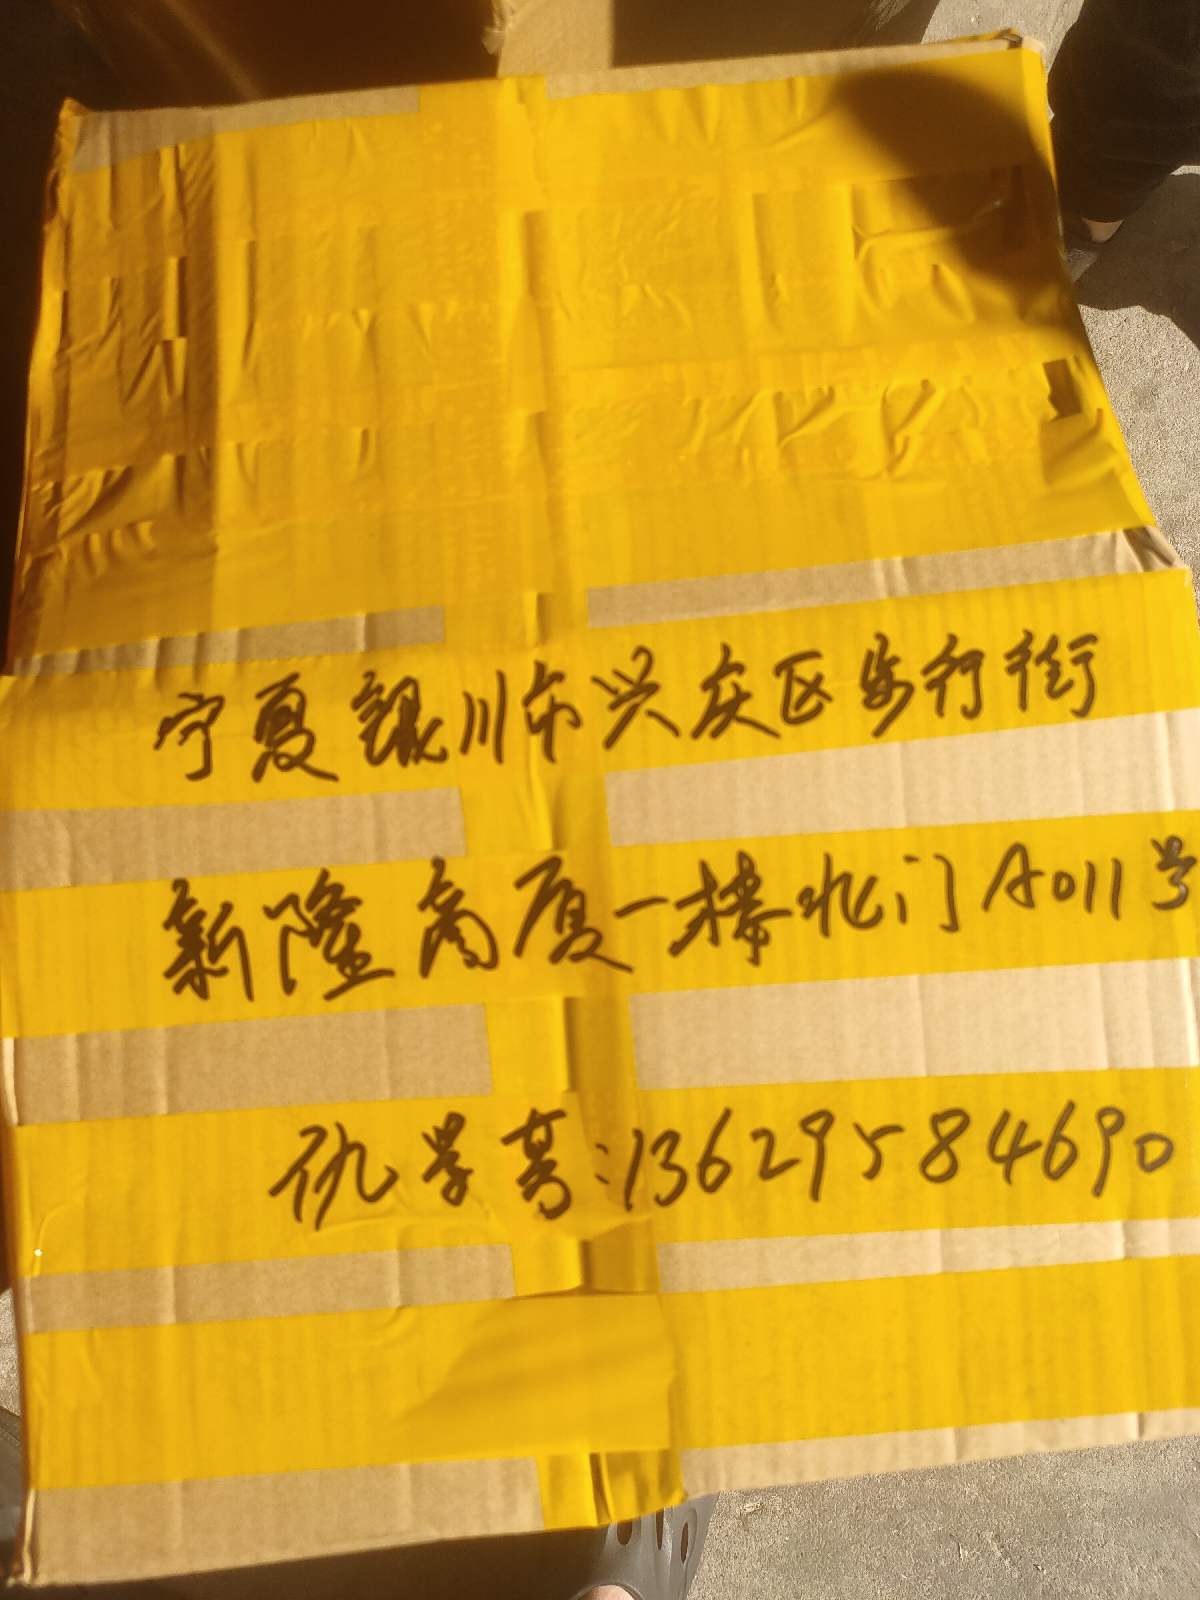 宁夏银川市兴庆区步行街
新隆商厦一楼北门A011号
仇学琴:13629584690